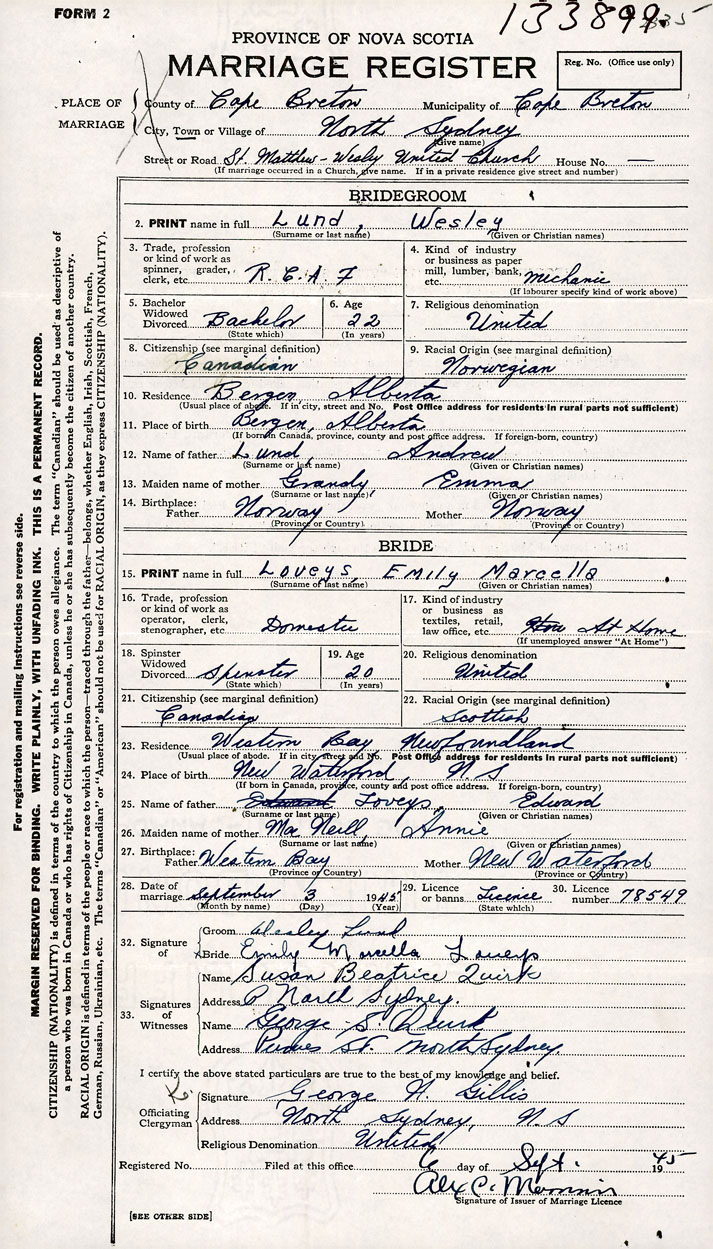 FORM 2
133899
PROVINCE OF NOVA SCOTIA
MARRIAGE REGISTER
Reg. No. (Office use only)
PLACE OF MARRIAGE
County of Cape Breton Municipality of Cape Breton
City, Town or Village of North Sydney
(Give name)
Street or Road St. Matthew-Wesley United Church House No. —
(If marriage occurred in a Church, give name. If in a private residence give street and number)
BRIDEGROOM
2. PRINT name in full Lund, Wesley
(Surname or last name) (Given or Christian names)
3. Trade, profession or kind of work as spinner, grader, clerk, etc. R.C.A.F
4. Kind of industry or business as paper mill, lumber, bank, etc. Mechanic
(If labourer specify kind of work above)
5. Bachelor Widowed Divorced Bachelor
(State which)
6. Age 22
(In years)
7. Religious denomination United
8. Citizenship (see marginal definition) Canadian
9. Racial Origin (see marginal definition) Norwegian
10. Residence Bergen, Alberta
(Usual place of abode. If in city, street and No. Post Office address for residents in rural parts not sufficient)
11. Place of birth Bergen, Alberta
(If born in Canada, province, county and post office address. If foreign-born, country)
12. Name of father Lund, Andrew
(Surname or last name) (Given or Christian names)
13. Maiden name of mother Grandy Emma
(Surname or last name) (Given or Christian names)
14. Birthplace: Father Norway Mother Norway
(Province or Country) (Province or Country)
BRIDE
15. PRINT name in full Loveys, Emily Marcella
(Surname or last name) (Given or Christian names)
16. Trade, profession or kind of work as operator, clerk, stenographer, etc. Domestic
17. Kind of industry or business as textiles, retail, law office, etc. At Home
(If unemployed answer "At Home")
18. Spinster Widowed Divorced Spinster
(State which)
19. Age 20
(In years)
20. Religious denomination United
21. Citizenship (see marginal definition) Canadian
22. Racial Origin (see marginal definition) Scottish
23. Residence Western Bay Newfoundland
(Usual place of abode. If in city, street and No. Post Office address for residents in rural parts not sufficient)
24. Place of birth New Waterford, N.S
(If born in Canada, province, county and post office address. If foreign-born, country)
25. Name of father Edward Loveys, Edward
(Surname or last name) (Given or Christian names)
26. Maiden name of mother Mac Neill, Annie
(Surname or last name) (Given or Christian names)
27. Birthplace: Father Western Bay Mother New Waterford
(Province or Country) (Province or Country)
28. Date of marriage September 3 1945
(Month by name) (Day) (Year)
29. Licence or banns Licence
(State which)
30. Licence number 78549
32. Signature of
Groom Wesley Lund
Bride Emily Marcella Loveys
33. Signatures of Witnesses
Name Susan Beatrice Quirk
Address North Sydney.
Name George S. Quirk
Address St. North Sydney
I certify the above stated particulars are true to the best of my knowledge and belief.
Officiating Clergyman
Signature George A. Gillis
Address North Sydney, N.S
Religious Denomination United
Registered No. Filed at this office 6 day of Sept. 1945
Alex C.
Signature of Issuer of Marriage Licence
[SEE OTHER SIDE]
For registration and mailing instructions see reverse side.
MARGIN RESERVED FOR BINDING. WRITE PLAINLY, WITH UNFADING INK. THIS IS A PERMANENT RECORD.
CITIZENSHIP (NATIONALITY) is defined in terms of the country to which the person owes allegiance. The term "Canadian" should be used as descriptive of
a person who was born in Canada or who has rights of Citizenship in Canada, unless he or she has subsequently become the citizen of another country.
RACIAL ORIGIN is defined in terms of the people or race to which the person—traced through the father—belongs, whether English, Irish, Scottish, French,
German, Russian, Ukrainian, etc. The terms "Canadian" or "American" should not be used for RACIAL ORIGIN, as they express CITIZENSHIP (NATIONALITY).